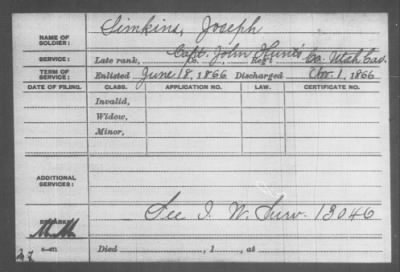 Simkins, Joseph
NAME OF
SOLDIER:
SERVICE:
Late rank, Capt. John Hunt's Co. Utah Cav.
TERM OF
SERVICE:
Enlisted June 18, 1866 Discharged Nov. 1, 1866
DATE OF FILING. CLASS. APPLICATION NO. LAW. CERTIFICATE NO.
Invalid,
Widow,
Minor,
ADDITIONAL
SERVICES:
See I. W. Surv. 13046
REMARKS:
Died , 1 , at